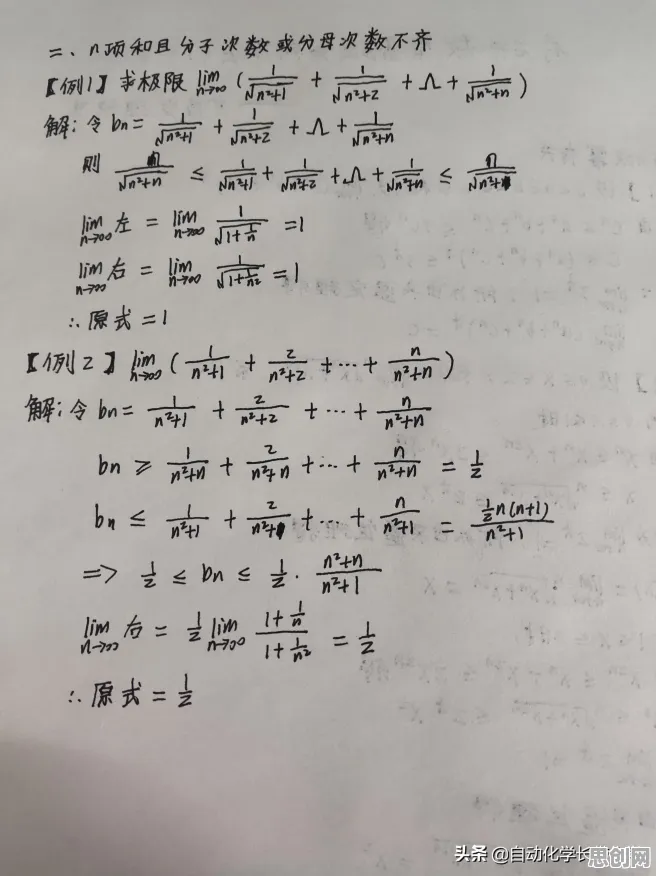 二、n项和且分子次数或分母次数不齐
【例1】求极限 lim n→∞ (1/√(n²+1) + 1/√(n²+2) + Λ + 1/√(n²+n))
解:令 bn = 1/√(n²+1) + 1/√(n²+2) + Λ + 1/√(n²+n)
则 n/√(n²+n) ≤ 1/√(n²+1) + 1/√(n²+2) + Λ + 1/√(n²+n) ≤ n/√(n²+1)
lim n→∞ 左 = lim n→∞ 1/√(1+1/n) = 1
lim n→∞ 右 = lim n→∞ 1/√(1+1/n²) = 1
∴原式 = 1
【例2】lim n→∞ (1/(n²+1) + 2/(n²+2) + ··· + n/(n²+n))
解:令 bn = 1/(n²+1) + 2/(n²+2) + ··· + n/(n²+n)
bn ≥ 1/(n²+n) + 2/(n²+n) + ··· + n/(n²+n) = 1/2
bn ≤ 1/(n²+1) + 2/(n²+1) + ··· + n/(n²+1) = ½n(n+1)/(n²+1)
=> 1/2 ≤ bn ≤ 1/2 · (n²+n)/(n²+1)
lim n→∞ 右 = 1/2 lim n→∞ (1+1/n)/(1+1/n²) = 1/2
∴原式 = 1/2
头条 @自动化学长
思创网